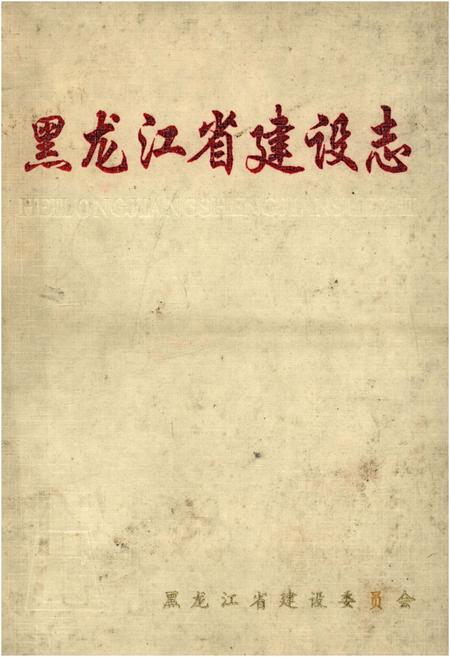 黑龙江省建设志
HEILONGJIANGSHENGJIANSHEZHI
黑龙江省建设委员会